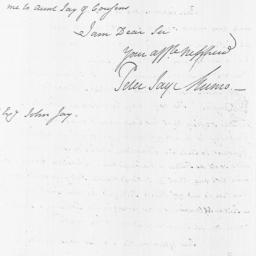 me to aunt Jay & Cousins
I am Dear Sir
Your affte. Nephew
Peter Jay Munro
Esqr John Jay.